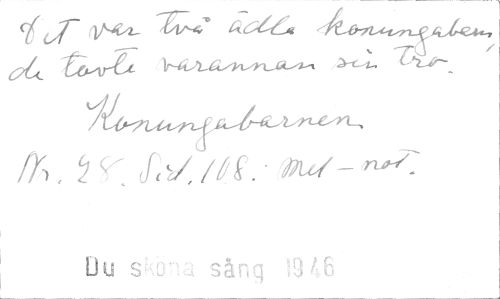 Det var två ädla konungabarn,
de lovte varannan sin tro.
Konungabarnen
Nr. 28. Sid. 108. Mel-not.
Du sköna sång 1946